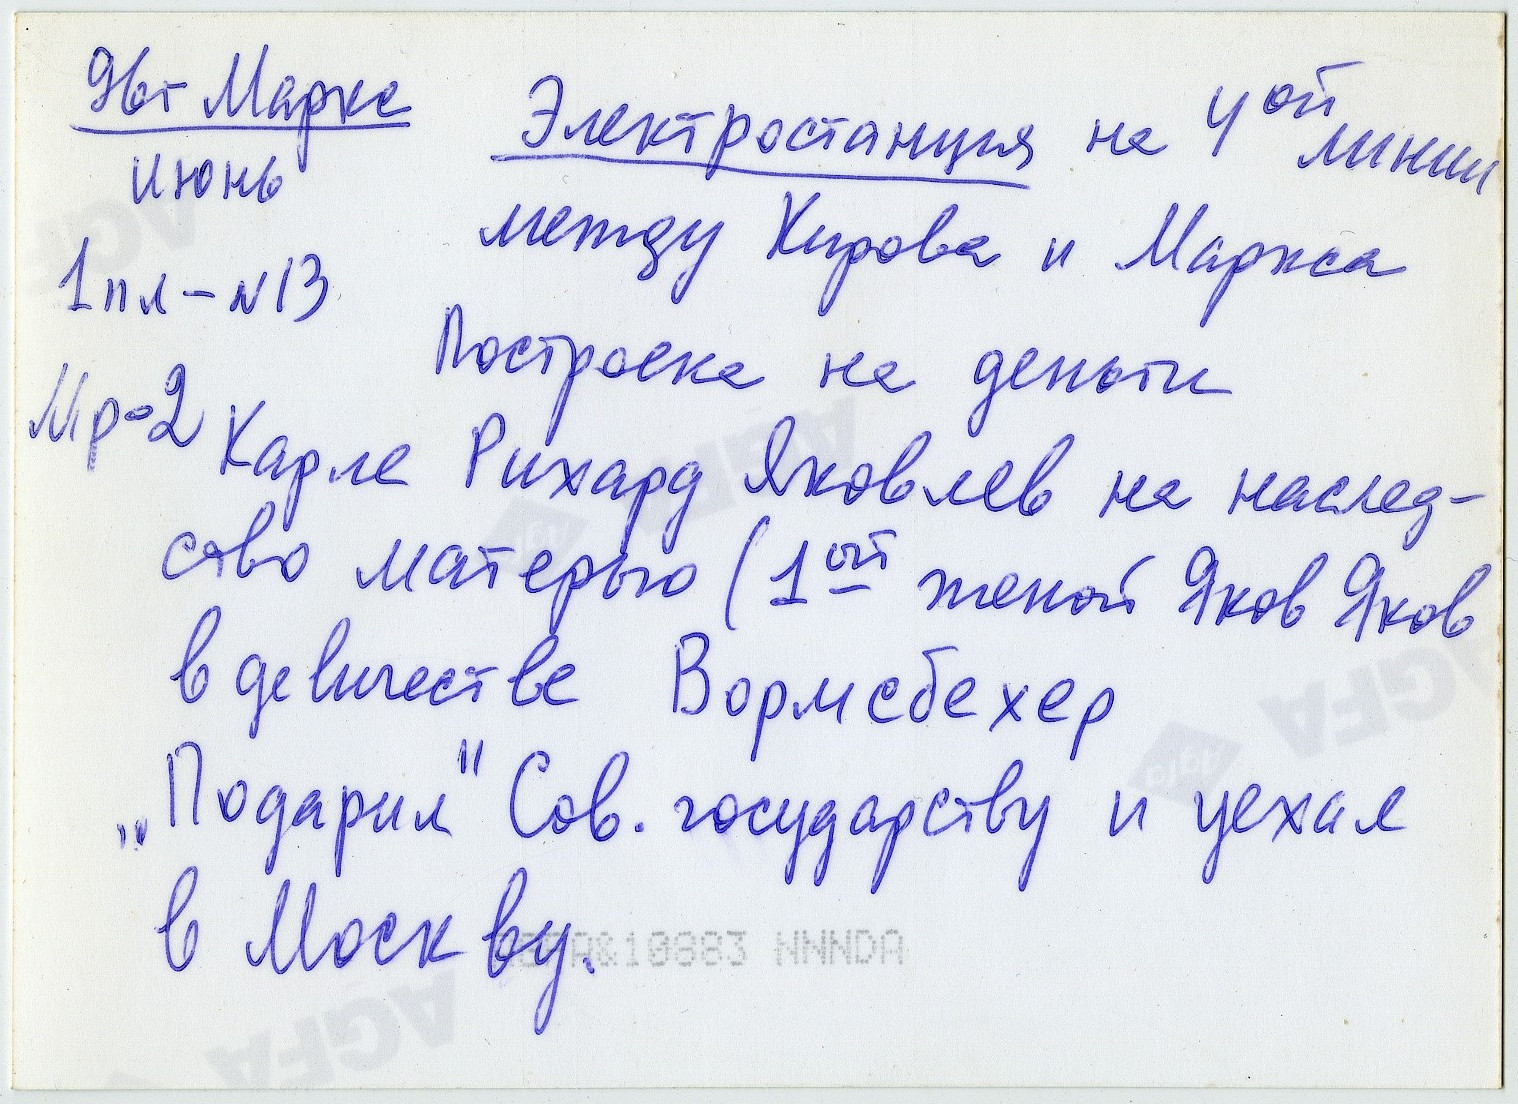 96г Маркс
июнь
1пл-N13
Мр-2
Электростанция на 4ой линии
между Кирова и Маркса
Построена на деньги
Карла Рихард Яковлев на наслед-
ство матерью (1ой женой Яков Яков
в девичестве Вормсбехер
„Подарил" Сов. государству и уехал
в Москву.
&10883 NNNDA
AGFA
AGFA
AGFA
AGFA